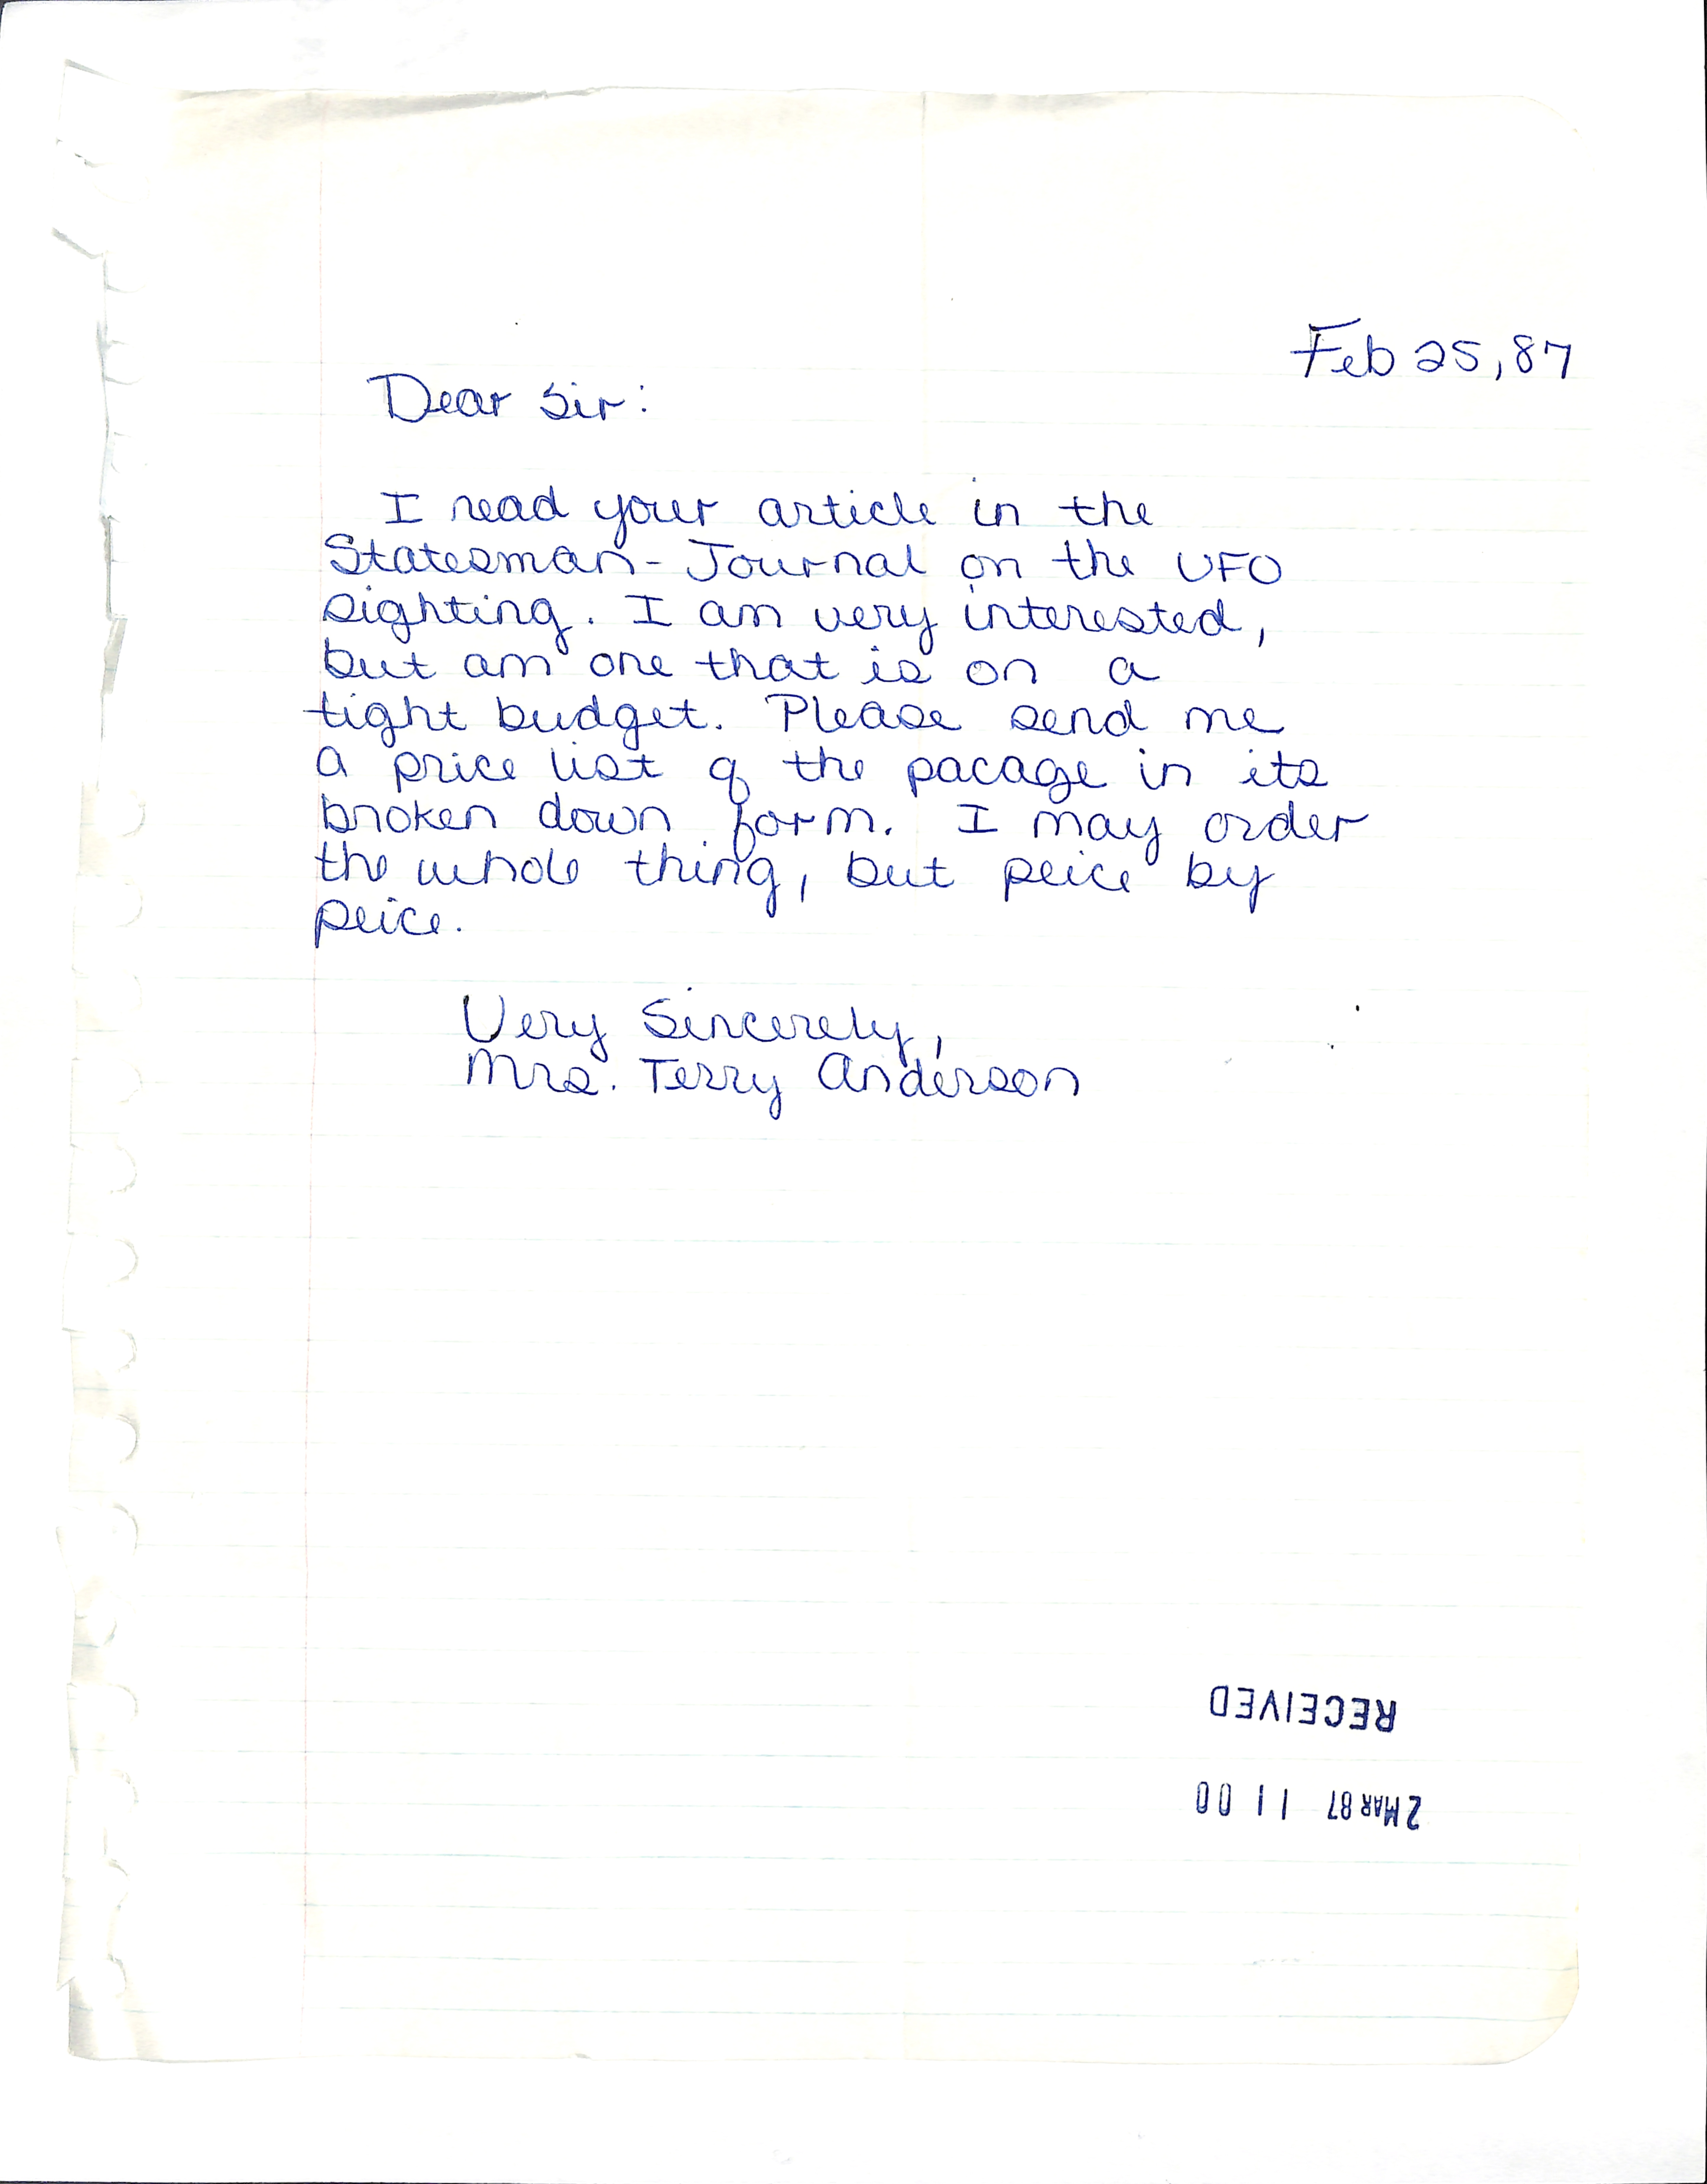 Feb 25, 87
Dear Sir:
I read your article in the
Statesman-Journal on the UFO
sighting. I am very interested,
but am one that is on a
tight budget. Please send me
a price list of the pacage in its
broken down form. I may order
the whole thing, but peice by
peice.
Very Sincerely,
Mrs. Terry Anderson
RECEIVED
2 MAR 87 11 00